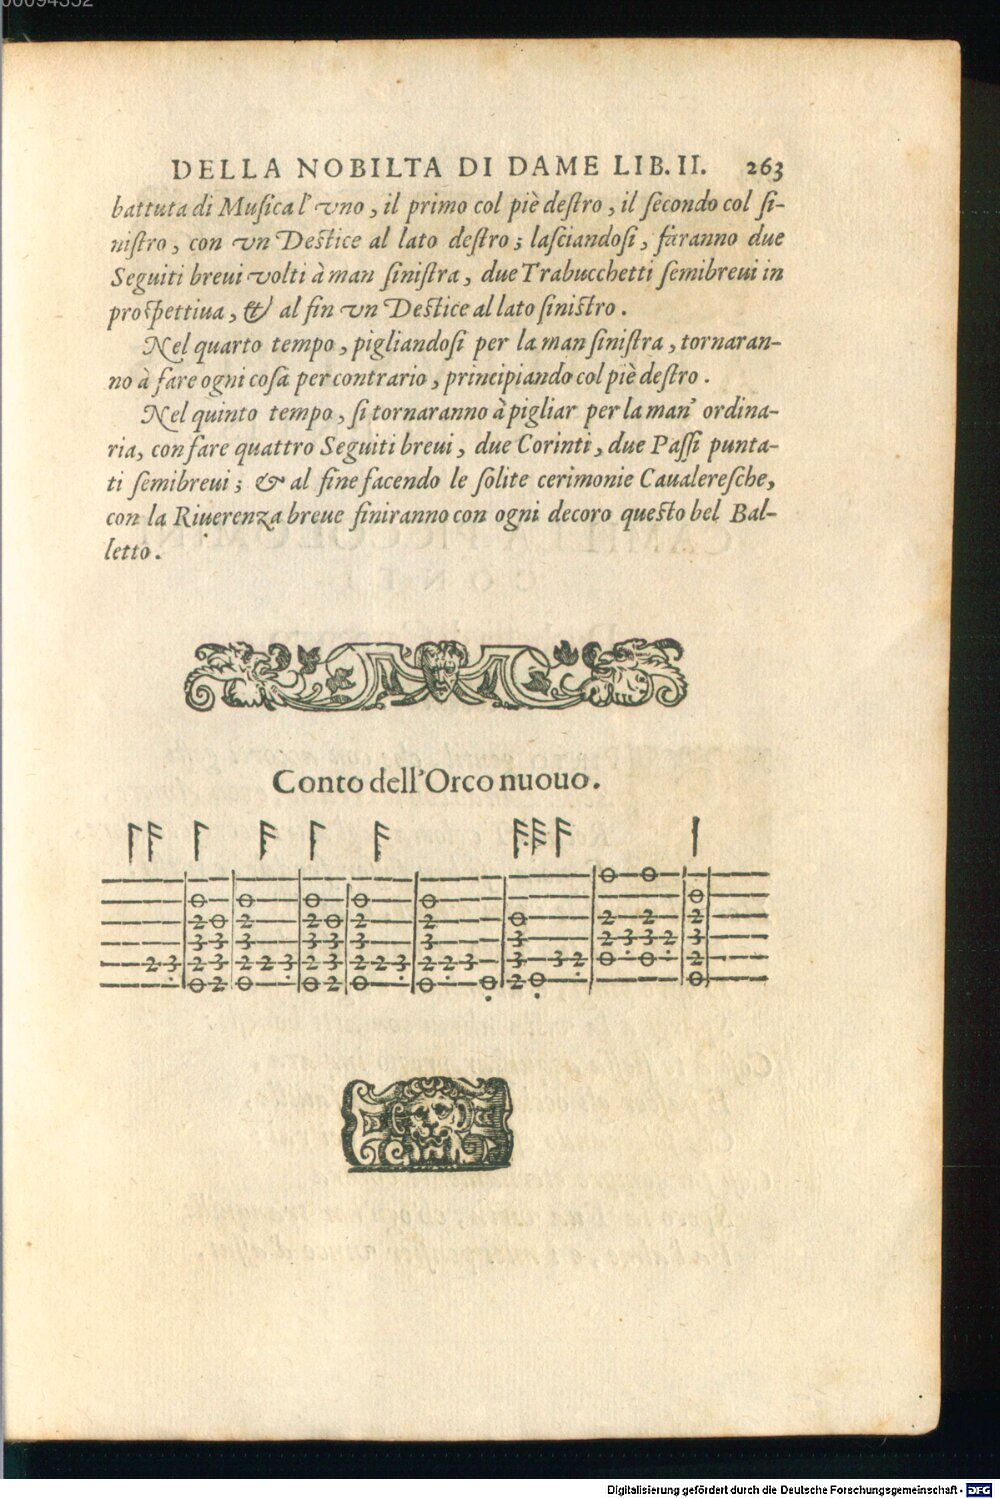 00094352
DELLA NOBILTA DI DAME LIB. II. 263
battuta di Muſica l'vno, il primo col piè deſtro, il ſecondo col ſi-
niſtro, con vn Deſtice al lato deſtro; laſciandoſi, faranno due
Seguiti breui volti à man ſiniſtra, due Trabucchetti ſemibreui in
proſpettiua, & al fin vn Deſtice al lato ſiniſtro.
Nel quarto tempo, pigliandoſi per la man ſiniſtra, tornaran-
no à fare ogni coſa per contrario, principiando col piè deſtro.
Nel quinto tempo, ſi tornaranno à pigliar per la man' ordina-
ria, con fare quattro Seguiti breui, due Corinti, due Paſſi punta-
ti ſemibreui; & al fine facendo le ſolite cerimonie Caualereſche,
con la Riuerenza breue finiranno con ogni decoro queſto bel Bal-
letto.
Conto dell'Orco nuouo.
Digitalisierung gefördert durch die Deutsche Forschungsgemeinschaft - DFG